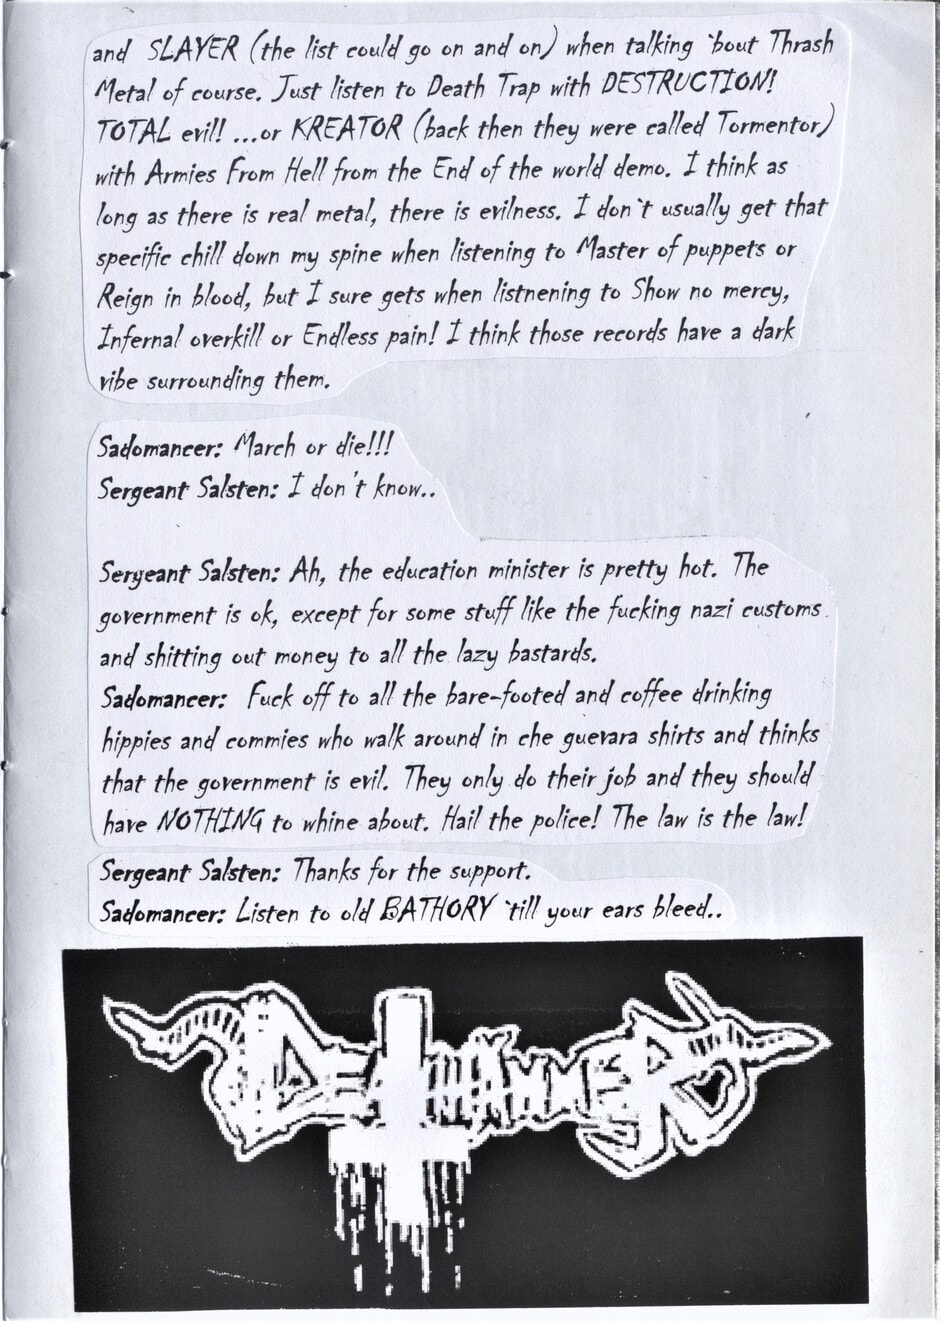 and SLAYER (the list could go on and on) when talking `bout Thrash
Metal of course. Just listen to Death Trap with DESTRUCTION!
TOTAL evil! ...or KREATOR (back then they were called Tormentor)
with Armies From Hell from the End of the world demo. I think as
long as there is real metal, there is evilness. I don`t usually get that
specific chill down my spine when listening to Master of puppets or
Reign in blood, but I sure gets when listnening to Show no mercy,
Infernal overkill or Endless pain! I think those records have a dark
vibe surrounding them.
Sadomancer: March or die!!!
Sergeant Salsten: I don't know..
Sergeant Salsten: Ah, the education minister is pretty hot. The
government is ok, except for some stuff like the fucking nazi customs
and shitting out money to all the lazy bastards.
Sadomancer: Fuck off to all the bare-footed and coffee drinking
hippies and commies who walk around in che guevara shirts and thinks
that the government is evil. They only do their job and they should
have NOTHING to whine about. Hail the police! The law is the law!
Sergeant Salsten: Thanks for the support.
Sadomancer: Listen to old BATHORY `till your ears bleed..
DEATHHAMMER